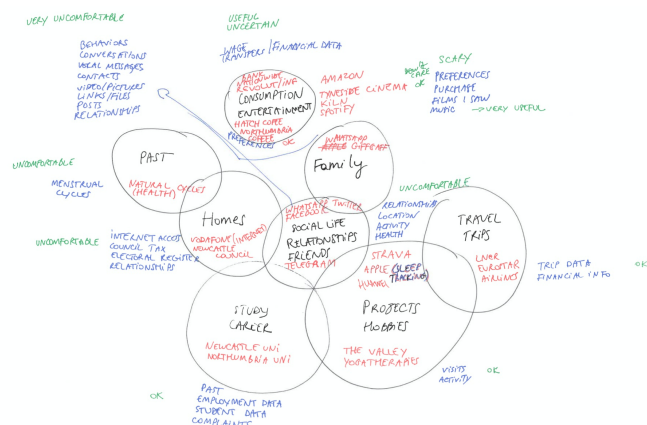 VERY UNCOMFORTABLE
BEHAVIORS
CONVERSATIONS
VOCAL MESSAGES
CONTACTS
VIDEO/PICTURES
LINKS/FILES
POSTS
RELATIONSHIPS
USEFUL
UNCERTAIN
WAGE
TRANSFERS/FINANCIAL DATA
BANK
NATIONWIDE
REVOLUT/
CONSUMPTION
ENTERTAINMENT
HATCH COFEE
NORTHUMBRIA
COFFEE
OK
PREFERENCES
AMAZON
TYNESIDE CINEMA
KILN
SPOTIFY
DON'T
CARE
OK
SCARY
PREFERENCES
PURCHASE
FILMS I SAW
MUSIC → VERY USEFUL
WHATSAPP
GIFFGAFF
Family
UNCOMFORTABLE
MENSTRUAL
CYCLES
PAST
NATURAL CYCLES
(HEALTH)
Homes
VODAFONE (INTERNET)
NEWCASTLE
COUNCIL
UNCOMFORTABLE
INTERNET ACCOS
COUNCIL TAX
ELECTORAL REGISTER
RELATIONSHIPS
WHATSAPP TWITTER
FACEBOOK
SOCIAL LIFE
RELATIONSHIPS
FRIENDS
TELEGRAM
UNCOMFORTABLE
RELATIONSHIPS
LOCATION
ACTIVITY
HEALTH
TRAVEL
TRIPS
LNER
EUROSTAR
AIRLINES
TRIP DATA
FINANCIAL INFO
OK
STRAVA
APPLE (SLEEP
TRACKING)
HUAWEI
PROJECTS
HOBBIES
THE VALLEY
YOGATHERAPIES
VISITS
ACTIVITY
OK
STUDY
CAREER
NEWCASTLE UNI
NORTHUMBRIA UNI
OK
PAST
EMPLOYMENT DATA
STUDENT DATA
COMPLAINTS